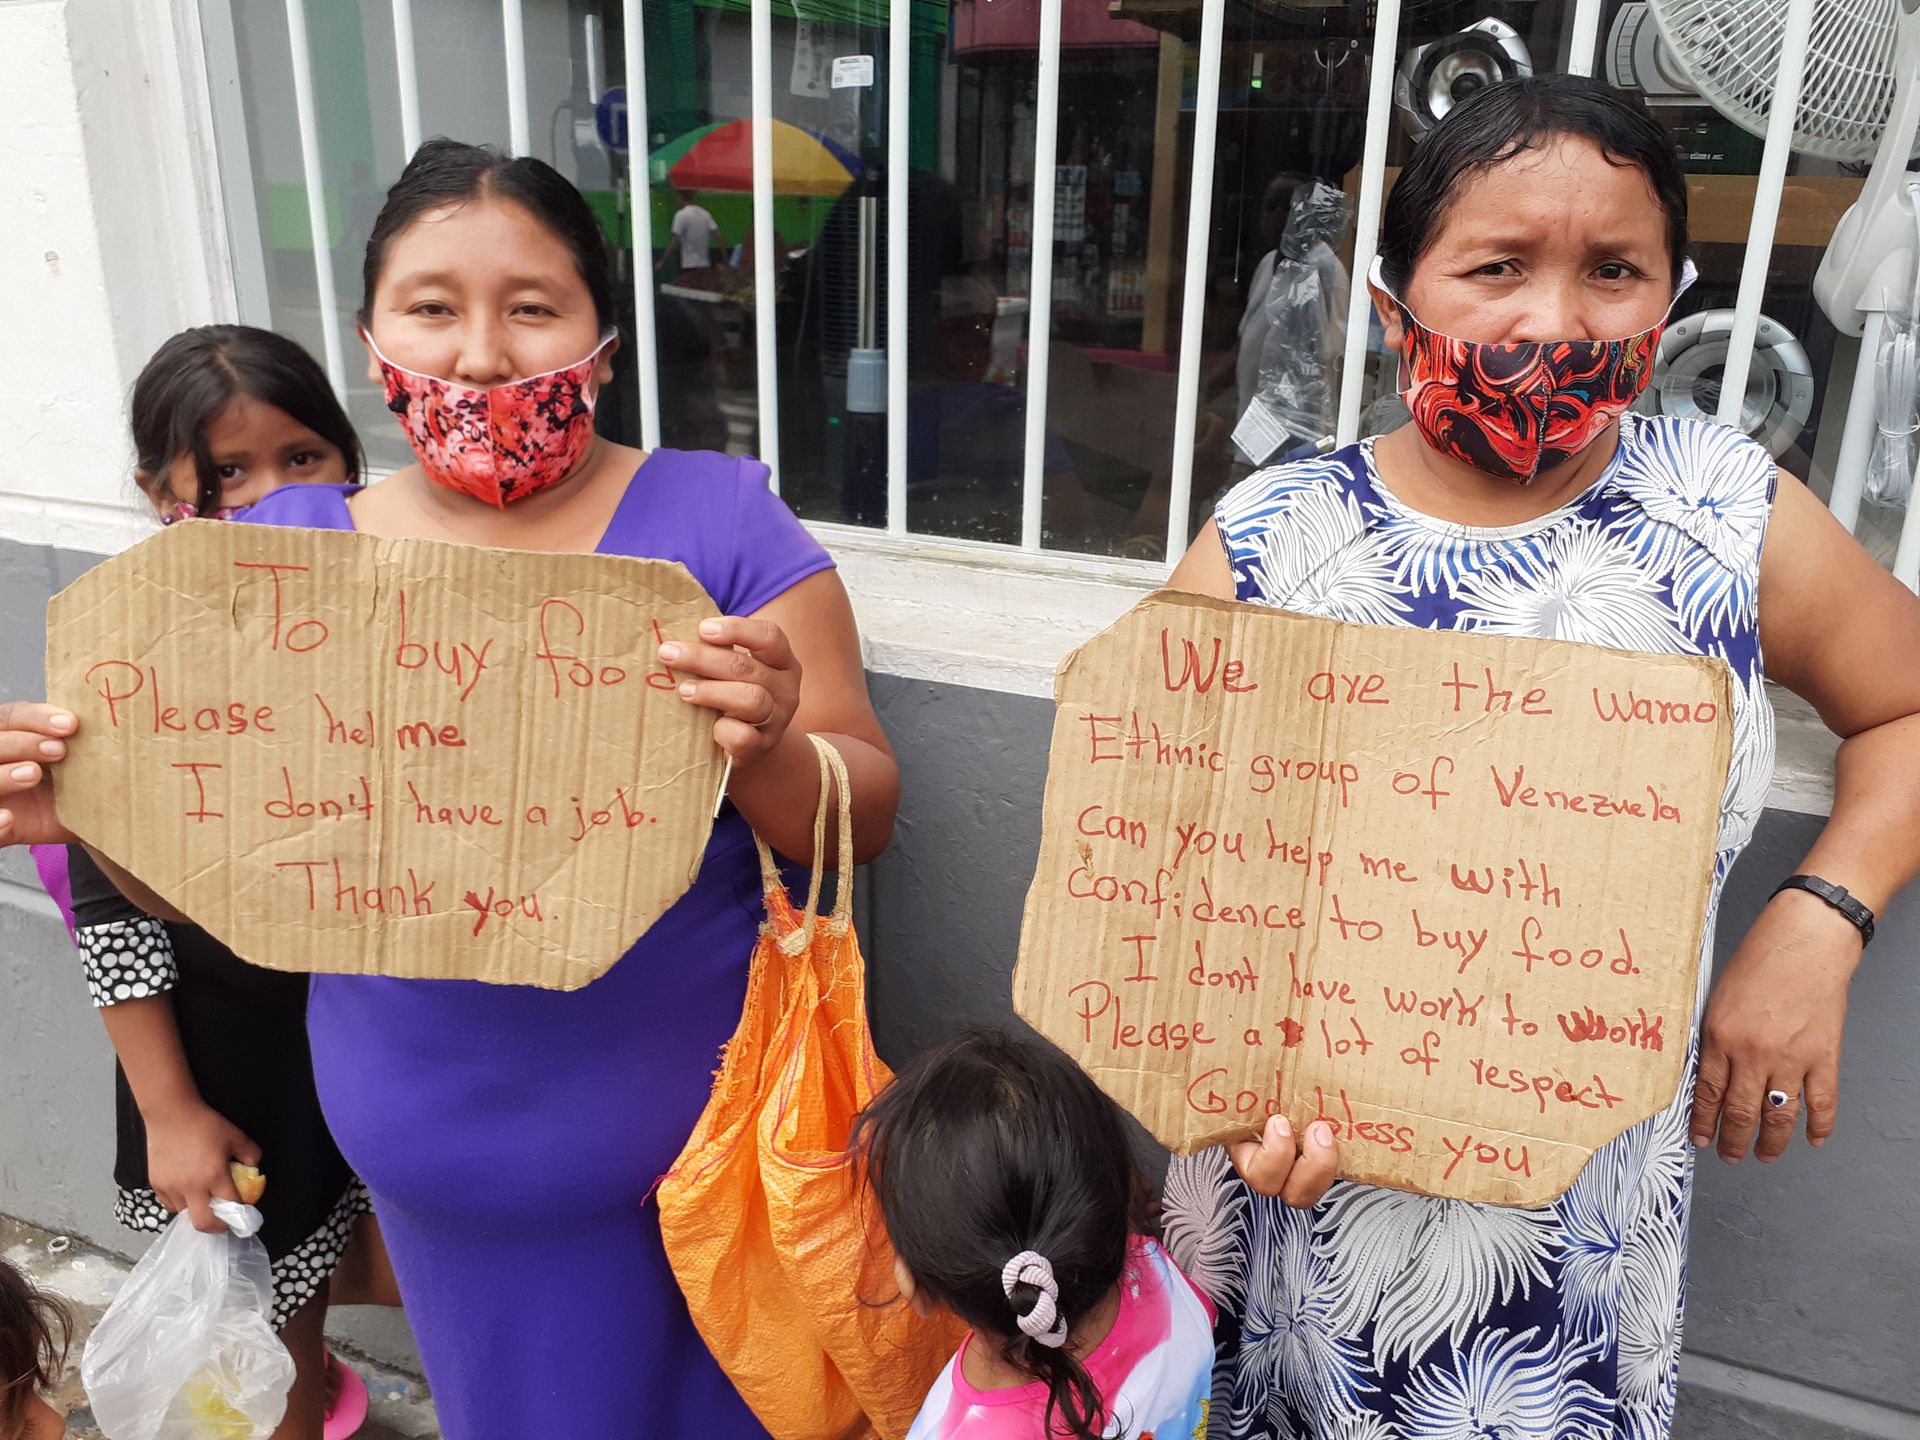 To buy food
Please hel me
I don't have a job.
Thank you.
We are the warao
Ethnic group of Venezuela
can you help me with
confidence to buy food.
I dont have work to work
Please a lot of respect
God bless you